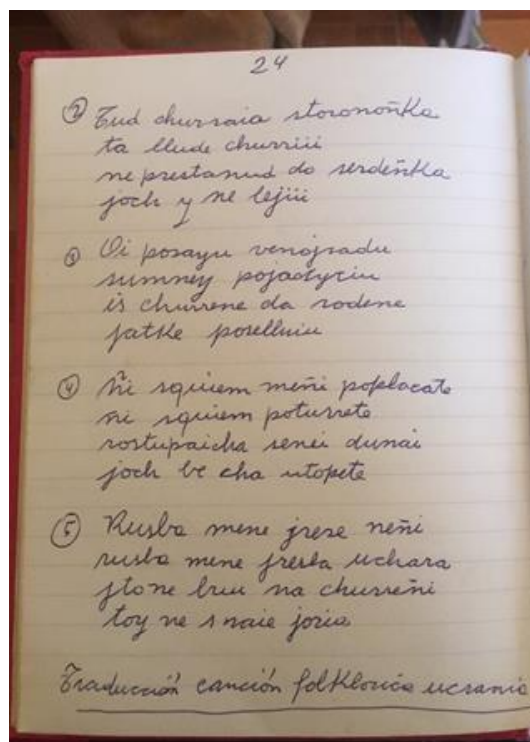 24
② Tud churraia storonoñka
ta llude churriii
ne prestanud do serdeñka
joch y ne lejiii
③ Oi posayu venojradu
sumney pojadyciu
is churrene da rodene
jatke posellniu
④ Ñi squiem meñi poplacate
ñi squiem poturrete
rostupaicha senei dunai
joch be cha utopete
⑤ Rusba mene jrese neñi
rusba mene fresba uchara
jto ne bruu na churreñi
toy ne snaie joria
Traducción canción folklorica ucrania